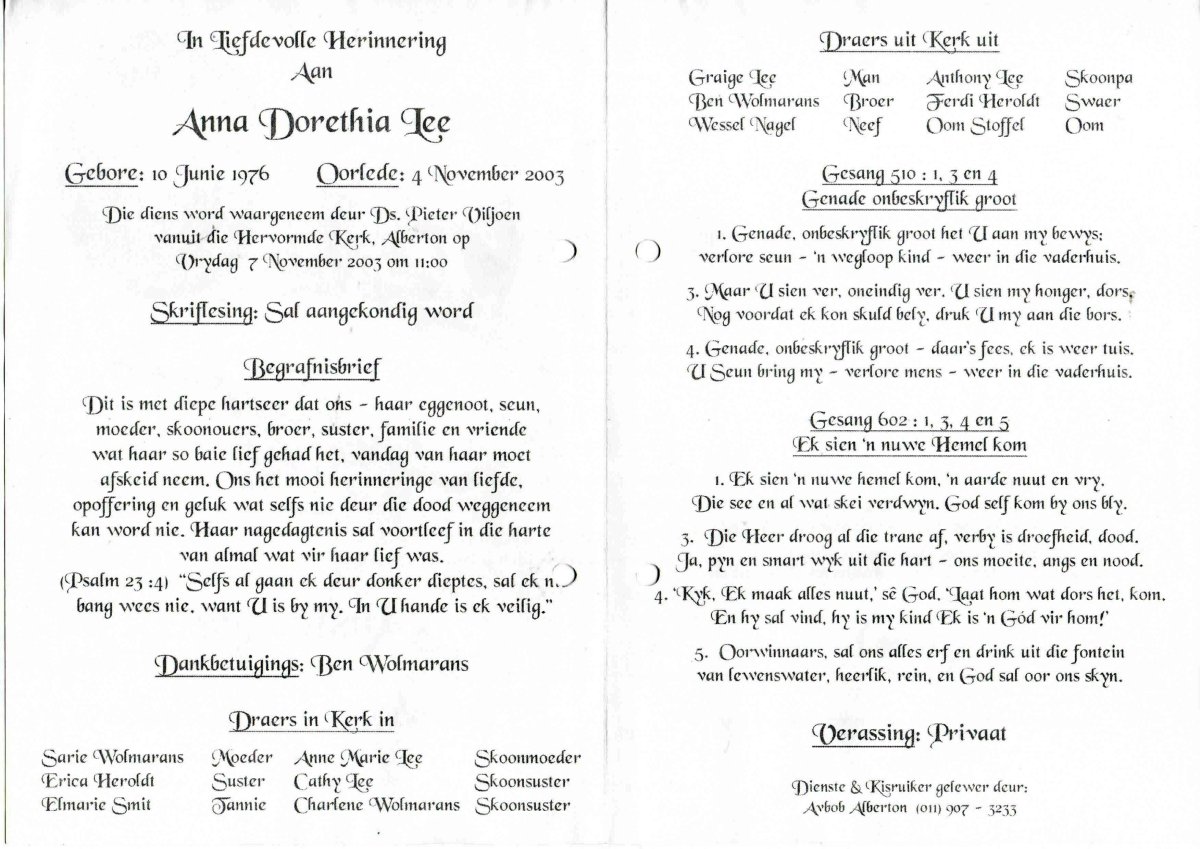 In Liefdevolle Herinnering
Aan
Anna Dorethia Lee
Gebore: 10 Junie 1976 Oorlede: 4 November 2003
Die diens word waargeneem deur Ds. Pieter Viljoen
vanuit die Hervormde Kerk, Alberton op
Vrydag 7 November 2003 om 11:00
Skriflesing: Sal aangekondig word
Begrafnisbrief
Dit is met diepe hartseer dat ons - haar eggenoot, seun,
moeder, skoonouers, broer, suster, familie en vriende
wat haar so baie lief gehad het, vandag van haar moet
afskeid neem. Ons het mooi herinneringe van liefde,
opoffering en geluk wat selfs nie deur die dood weggeneem
kan word nie. Haar nagedagtenis sal voortleef in die harte
van almal wat vir haar lief was.
(Psalm 23 :4) "Selfs al gaan ek deur donker dieptes, sal ek
bang wees nie, want U is by my. In U hande is ek veilig."
Dankbetuigings: Ben Wolmarans
Draers in Kerk in
Sarie Wolmarans Moeder Anne Marie Lee Skoonmoeder
Erica Heroldt Suster Cathy Lee Skoonsuster
Elmarie Smit Tannie Charlene Wolmarans Skoonsuster
Draers uit Kerk uit
Graige Lee Man Anthony Lee Skoonpa
Ben Wolmarans Broer Ferdi Heroldt Swaer
Wessel Nagel Neef Oom Stoffel Oom
Gesang 510 : 1, 3 en 4
Genade onbeskryflik groot
1. Genade, onbeskryflik groot het U aan my bewys;
verlore seun - 'n wegloop kind - weer in die vaderhuis.
3. Maar U sien ver, oneindig ver, U sien my honger, dors,
Nog voordat ek kon skuld bely, druk U my aan die bors.
4. Genade, onbeskryflik groot - daar's fees, ek is weer tuis.
U Seun bring my - verlore mens - weer in die vaderhuis.
Gesang 602 : 1, 3, 4 en 5
Ek sien 'n nuwe Hemel kom
1. Ek sien 'n nuwe hemel kom, 'n aarde nuut en vry.
Die see en al wat skei verdwyn. God self kom by ons bly.
3. Die Heer droog al die trane af, verby is droefheid, dood.
Ja, pyn en smart wyk uit die hart - ons moeite, angs en nood.
4. 'Kyk, Ek maak alles nuut,' sê God, 'Laat hom wat dors het, kom.
En hy sal vind, hy is my kind Ek is 'n Gód vir hom!'
5. Oorwinnaars, sal ons alles erf en drink uit die fontein
van lewenswater, heerlik, rein, en God sal oor ons skyn.
Verassing: Privaat
Dienste & Kisruiker gelewer deur:
Avbob Alberton (011) 907 - 3233